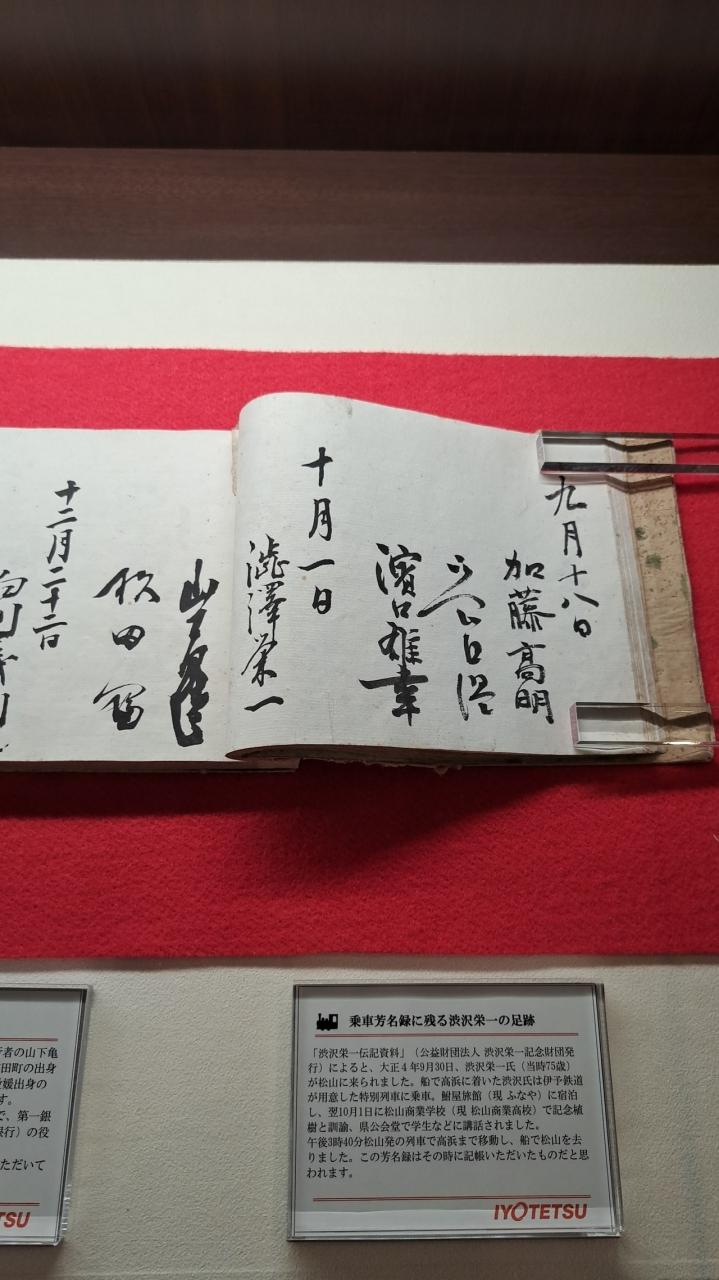 九月十八日
加藤高明
濱口雄幸
十月一日
澁澤栄一
山下
田
十二月二十二日
者の山下亀
田町の出身
媛出身の
す。
で、第一銀
行）の役
ただいて
TSU
乗車芳名録に残る渋沢栄一の足跡
「渋沢栄一伝記資料」（公益財団法人 渋沢栄一記念財団発
行）によると、大正４年9月30日、渋沢栄一氏（当時75歳）
が松山に来られました。船で高浜に着いた渋沢氏は伊予鉄道
が用意した特別列車に乗車。鮒屋旅館（現 ふなや）に宿泊
し、翌10月1日に松山商業学校（現 松山商業高校）で記念植
樹と訓諭、県公会堂で学生などに講話されました。
午後3時40分松山発の列車で高浜まで移動し、船で松山を去
りました。この芳名録はその時に記帳いただいたものだと思
われます。
IYOTETSU